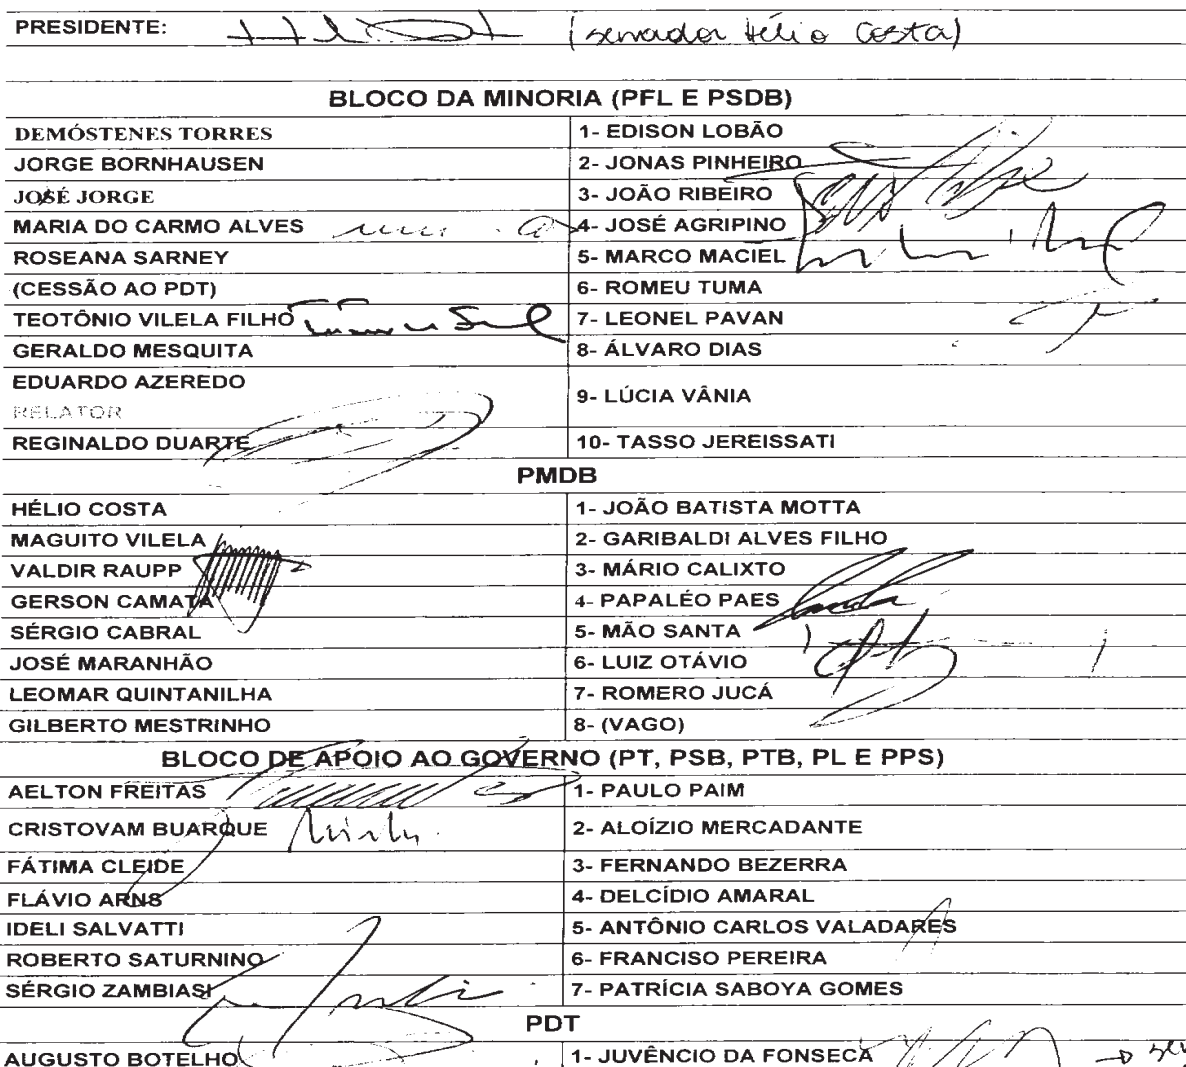 PRESIDENTE: (senador Hélio Costa)
BLOCO DA MINORIA (PFL E PSDB)
DEMÓSTENES TORRES 1- EDISON LOBÃO
JORGE BORNHAUSEN 2- JONAS PINHEIRO
JOSÉ JORGE 3- JOÃO RIBEIRO
MARIA DO CARMO ALVES 4- JOSÉ AGRIPINO
ROSEANA SARNEY 5- MARCO MACIEL
(CESSÃO AO PDT) 6- ROMEU TUMA
TEOTÔNIO VILELA FILHO 7- LEONEL PAVAN
GERALDO MESQUITA 8- ÁLVARO DIAS
EDUARDO AZEREDO
RELATOR 9- LÚCIA VÂNIA
REGINALDO DUARTE 10- TASSO JEREISSATI
PMDB
HÉLIO COSTA 1- JOÃO BATISTA MOTTA
MAGUITO VILELA 2- GARIBALDI ALVES FILHO
VALDIR RAUPP 3- MÁRIO CALIXTO
GERSON CAMATA 4- PAPALÉO PAES
SÉRGIO CABRAL 5- MÃO SANTA
JOSÉ MARANHÃO 6- LUIZ OTÁVIO
LEOMAR QUINTANILHA 7- ROMERO JUCÁ
GILBERTO MESTRINHO 8- (VAGO)
BLOCO DE APOIO AO GOVERNO (PT, PSB, PTB, PL E PPS)
AELTON FREITAS 1- PAULO PAIM
CRISTOVAM BUARQUE 2- ALOÍZIO MERCADANTE
FÁTIMA CLEIDE 3- FERNANDO BEZERRA
FLÁVIO ARNS 4- DELCÍDIO AMARAL
IDELI SALVATTI 5- ANTÔNIO CARLOS VALADARES
ROBERTO SATURNINO 6- FRANCISO PEREIRA
SÉRGIO ZAMBIASI 7- PATRÍCIA SABOYA GOMES
PDT
AUGUSTO BOTELHO 1- JUVÊNCIO DA FONSECA